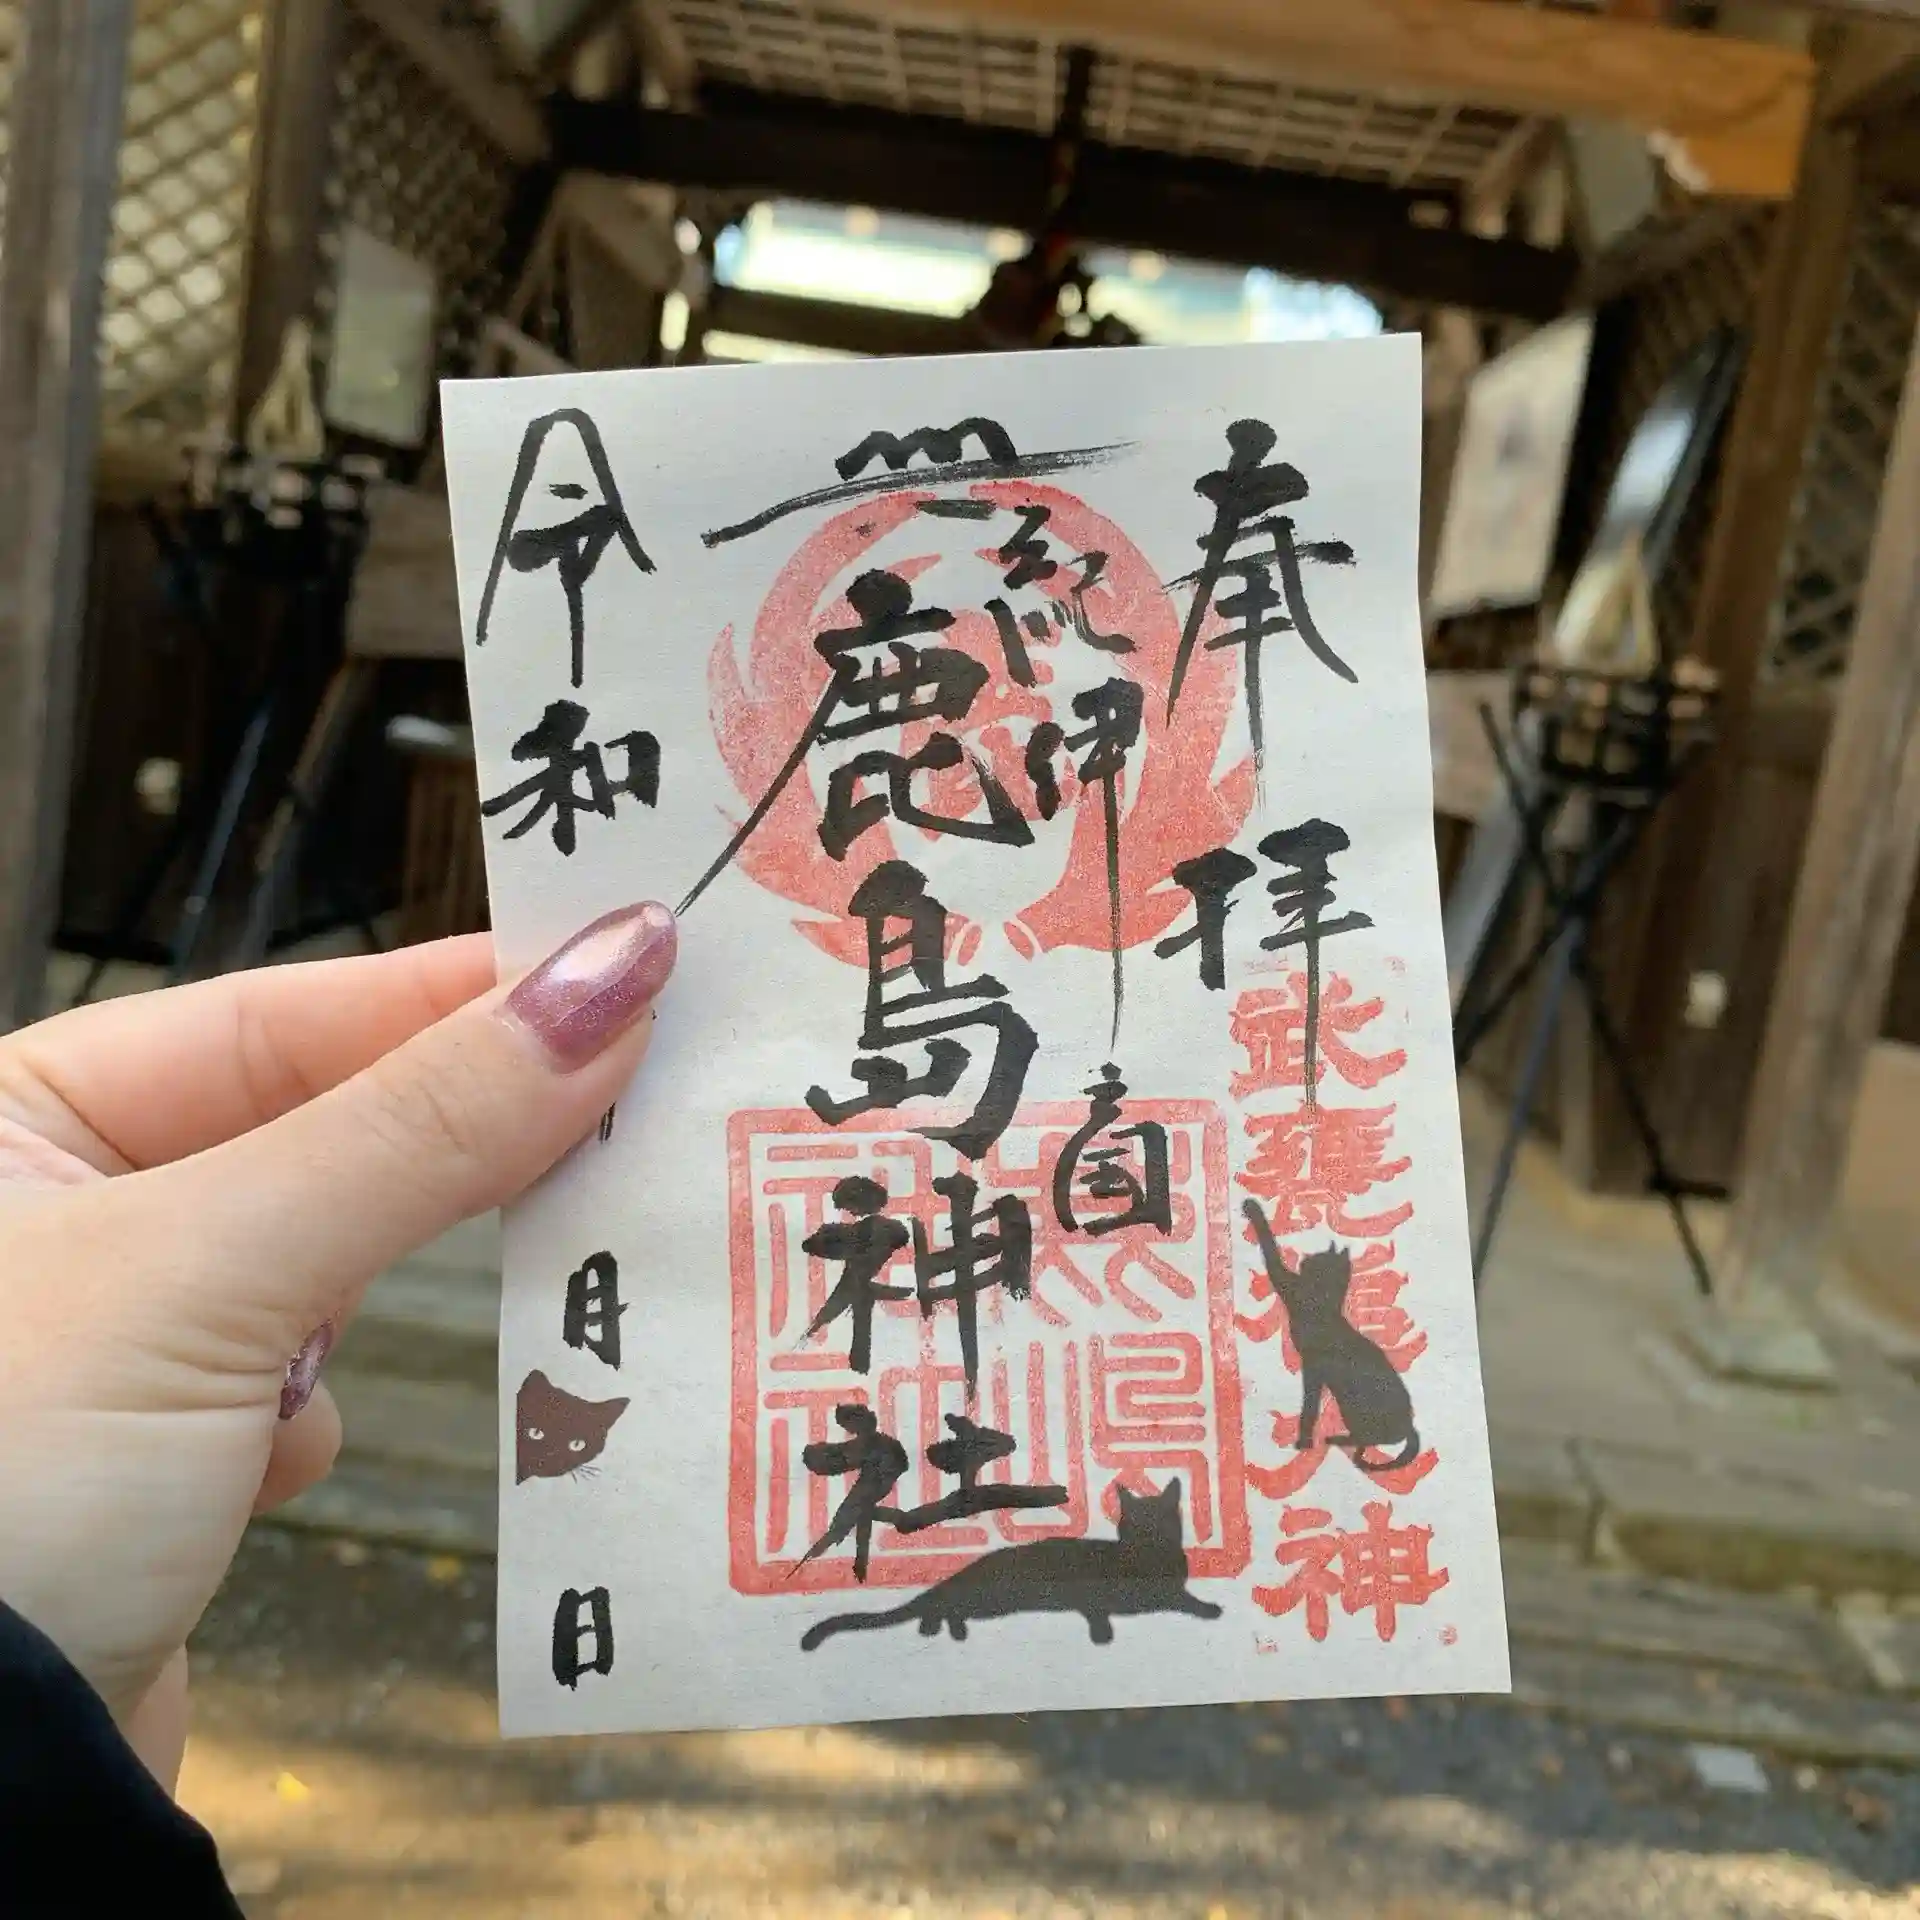 奉拝
武甕槌大神
紀伊国
鹿島神社
鹿嶋
神社
令和
月
日